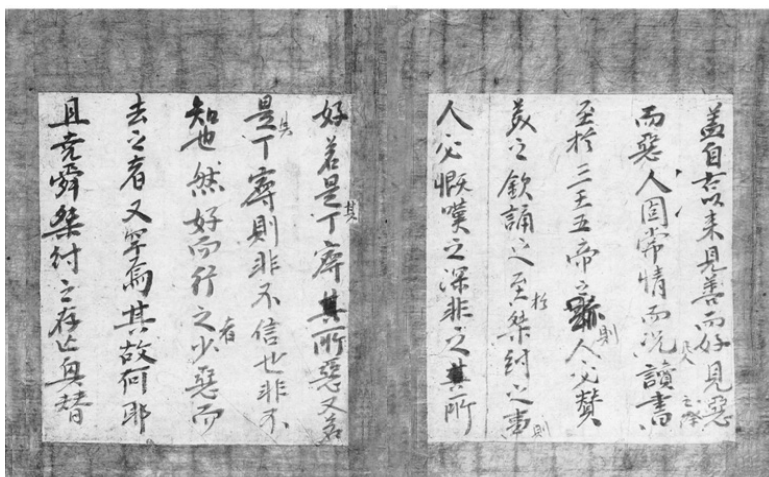 盖自古以来見善而好見惡
而惡人固常情而况讀書
至於三王五帝之跡則人必賛
美之欽誦之至於桀紂之事則
人必慨嘆之深非之其所
好若是丁寧其所惡又若
是其丁寧則非不信也非不
知也然好而行之者少惡而
去之者又罕焉其故何耶
且堯舜桀紂之存亡興替